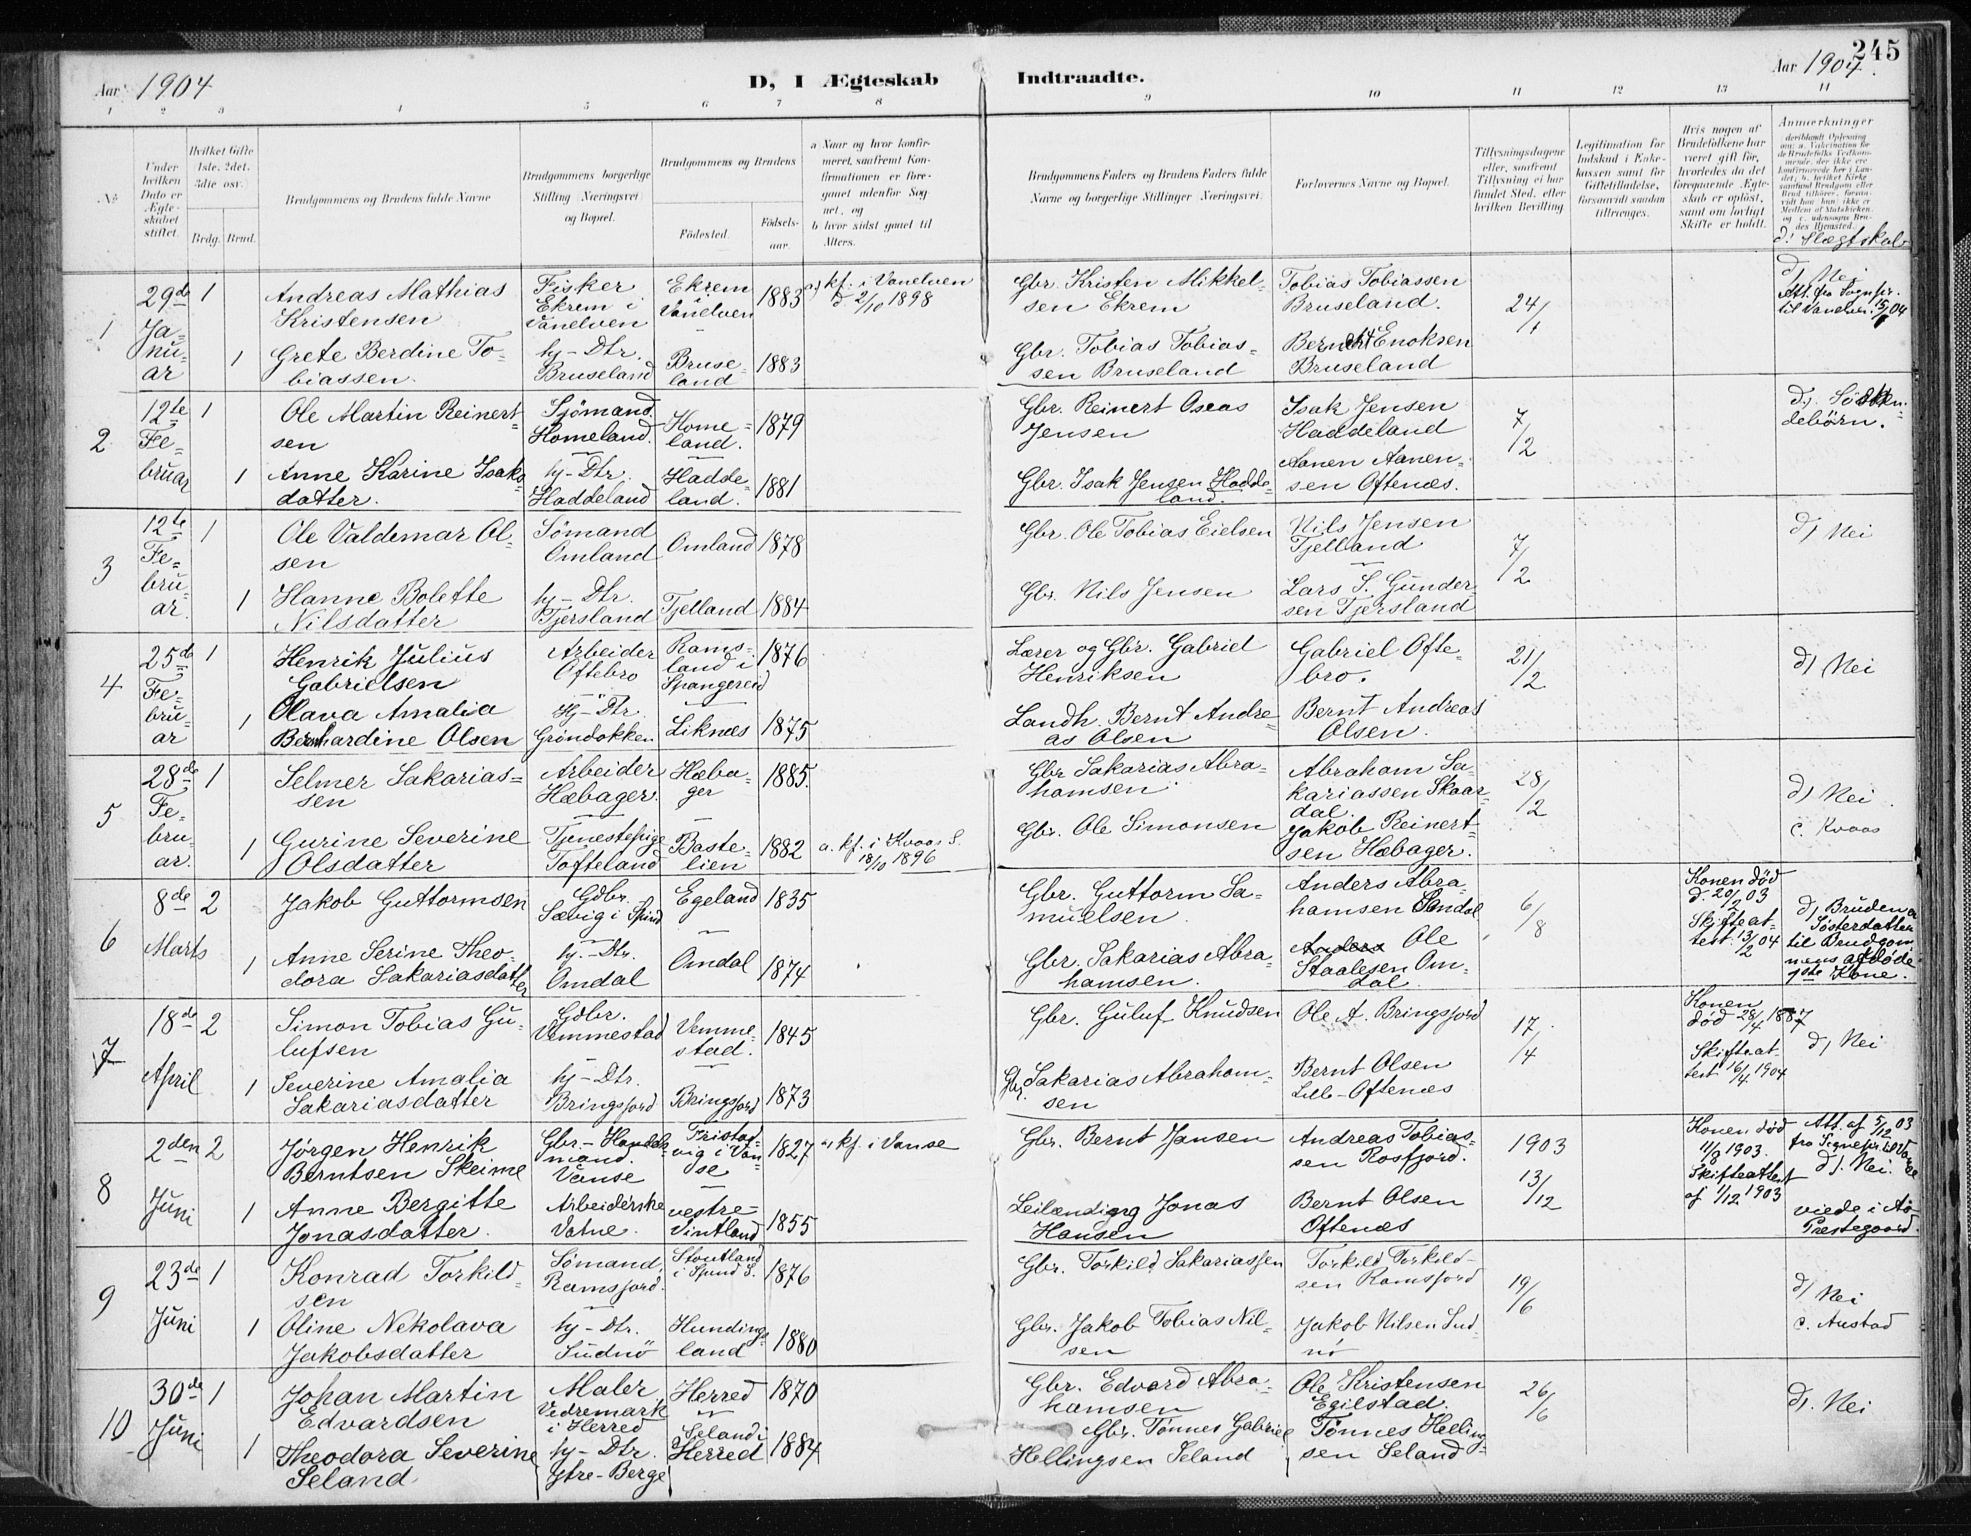 245
Aar 1904
D, I Ægteskab Indtraadte.
Aar 1904.
1 2 3 4 5 6 7 8 9 10 11 12 13 14
No
Under hvilken Dato er Ægteskabet stiftet.
Hvilket Gifte 1ste, 2det, 3die osv.
Brdg. Brud.
Brudgommens og Brudens fulde Navne
Brudgommens borgerlige Stilling Næringsvei og Bopæl.
Brudgommens og Brudens
Fødested.
Fødselsaar.
a Naar og hvor konfirmeret, saafremt Konfirmationen er foregaaet udenfor Sognet, og
b hvor sidst gaaet til Alters.
Brudgommens Faders og Brudens Faders fulde Navne og borgerlige Stillinger Næringsvei.
Forlovernes Navne og Bopæl.
Tillysningsdagene eller, saafremt Tillysning ei har fundet Sted, efter hvilken Bevilling
Legitimation for Indskud i Enkekassen samt for Giftetilladelse, forsaavidt saadan tiltrænges.
Hvis nogen af Brudefolkene har været gift før, hvorledes da det foregaaende Ægteskab er opløst, samt om lovligt Skifte er holdt.
Anmærkninger
d: Slægtskab
1
29de Januar
1
Andreas Mathias Kristensen
Fisker Ekrem i Vanelven
Ekrem Vanelven
1883
a) kf. i Vanelven 2/10 1898
Gbr. Kristen Mikkelsen Ekrem
Tobias Tobiassen Bruseland.
24/1
d) Nei
Att. fra Sognepr. til Vanelven 15/1 04
1
Grete Berdine Tobiassen.
hj-Dtr. Bruseland
Bruseland
1883
Gbr. Tobias Tobiassen Bruseland
Berndt Enoksen Bruseland
2
12te Februar
1
Ole Martin Reinertsen
Sjömand Homeland.
Homeland.
1879
Gbr. Reinert Oseas Jensen
Isak Jensen Haddeland
7/2
d). Södskendebörn.
1
Anne Karine Isaksdatter.
hj-Dtr. Haddeland
Haddeland.
1881
Gbr. Isak Jensen Haddeland.
Aanen Aanensen Oftenæs.
3
12te Februar
1
Ole Valdemar Olsen
Sömand Omland
Omland
1878
Gbr. Ole Tobias Eielsen
Nils Jensen Tjelland
7/2
d) Nei
1
Hanne Bolette Nilsdatter
hj-Dtr. Tjersland
Tjelland
1884
Gbr. Nils Jensen
Lars S. Gundersen Tjersland
4
25de Februar
1
Henrik Julius Gabrielsen
Arbeider Oftebro
Ramsland i Spangereid
1876
Lærer og Gbr. Gabriel Henriksen
Gabriel Oftebro.
21/2
d) Nei
1
Olava Amalia Bernhardine Olsen
Hj-Dtr. Gröndokken
Liknæs
1875
Landh. Bernt Andreas Olsen
Bernt Andreas Olsen.
5
28de Februar
1
Selmer Sakariassen
Arbeider Hæbager.
Hæbager
1885.
Gbr Sakarias Abrahamsen
Abraham Sakariassen Skaardal.
28/2
d) Nei
c. Kvaas
1
Gurine Severine Olsdatter
Tjenestepige Tofteland
Bastelien
1882
a. kf. i Kvaas S. 18/10 1896
Gbr. Ole Simonsen
Jakob Reinertsen Hæbager.
6
8de Marts
2
Jakob Guttormsen
Gdbr. Sævig i Spind
Egeland
1835
Gbr. Guttorm Samuelsen
Anders Abrahamsen Sandal
6/8
Konen död d. 20/2 03 Skifteattest. 13/2 04
d) Bruden a Søsterdatter til Brudgommens afdøde 1ste Kone.
1
Anne Serine Theodora Sakariasdatter
hj.-Dtr. Omdal
Omdal
1874
Gbr. Sakarias Abrahamsen.
Anders Ole Staalesen Omdal
7
18de April
2
Simon Tobias Gulufsen
Gdbr. Vemmestad
Vemmestad.
1845
Gbr. Guluf Knudsen
Ole A. Bringsfjord
17/4
Konen död 28/4 1887 Skifteattest 16/4 1904
d) Nei
1
Severine Amalia Sakariasdatter
hj-Dtr. Bringsfjord
Bringsfjord
1873
Gbr. Sakarias Abrahamsen
Bernt Olsen Lille-Oftenæs
8
2den Juni
2
Jørgen Henrik Berntsen Skeime
Gbr-Handelsmand. Vanse
Tristadvig i Vanse
1827
a, kf. i Vanse
Gbr. Bernt Jansen
Andreas Tobiassen Rosfjord.
1903 13/12
Konen död 11/8 1903. Skifteattest af 1/12 1903
Att. af 5/12 03 fra Sognepr. til Vanse d). Nei. viede i Aa Præstegaard.
1
Anne Bergitte Jonasdatter.
Arbeiderske Vatne.
vestre Vintland
1855
Leilænding Jonas Hansen
Bernt Olsen Oftenæs
9
23de Juni
1
Konrad Torkildsen
Sömand. Ramsfjord.
Stoutland i Spind S.
1876
Gbr. Torkild Sakariassen
Torkild Torkildsen Ramsfjord
19/6
d) Nei
c. Austad
1
Oline Nekolava Jakobsdatter
hj-Dtr. Sudnö
Hundingsland
1880
Gbr. Jakob Tobias Nilsen
Jakob Nilsen Sudnö
10
30de Juni
1
Johan Martin Edvardsen
Maler Vedremark i Herred
Herred
1870
Gbr. Edvard Abrahamsen
Ole Kristensen Egilstad.
26/6
d). Nei
1
Theodora Severine Seland
hj-Dtr. Ytre-Berge
Seland i Herred
1884
Gbr. Tønnes Gabriel Hellingsen Seland
Tønnes Hellingsen Seland